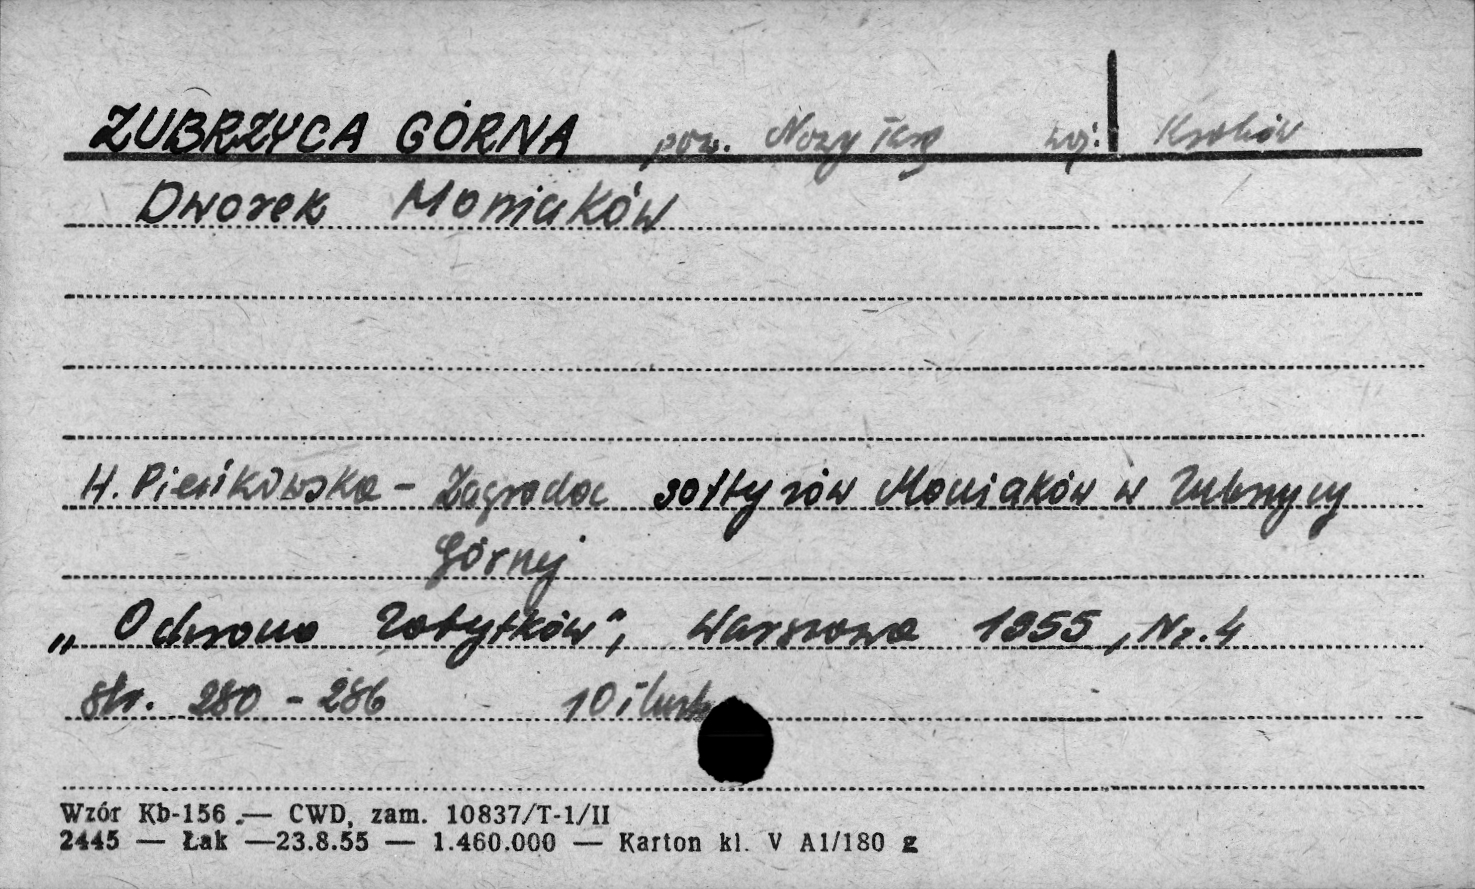 ZUBRZYCA GÓRNA pow. Nowy Targ woj. Kraków
Dworek Moniaków
H. Pieńkowska - Zagroda sołtysów Moniaków w Zubrzycy
Górnej
„Ochrona Zabytków", Warszawa 1955, Nr. 4
str. 280 - 286 10 ilustr
Wzór Kb-156 — CWD, zam. 10837/T-1/II
2445 — Łak —23.8.55 — 1.460.000 — Karton kl. V A1/180 g